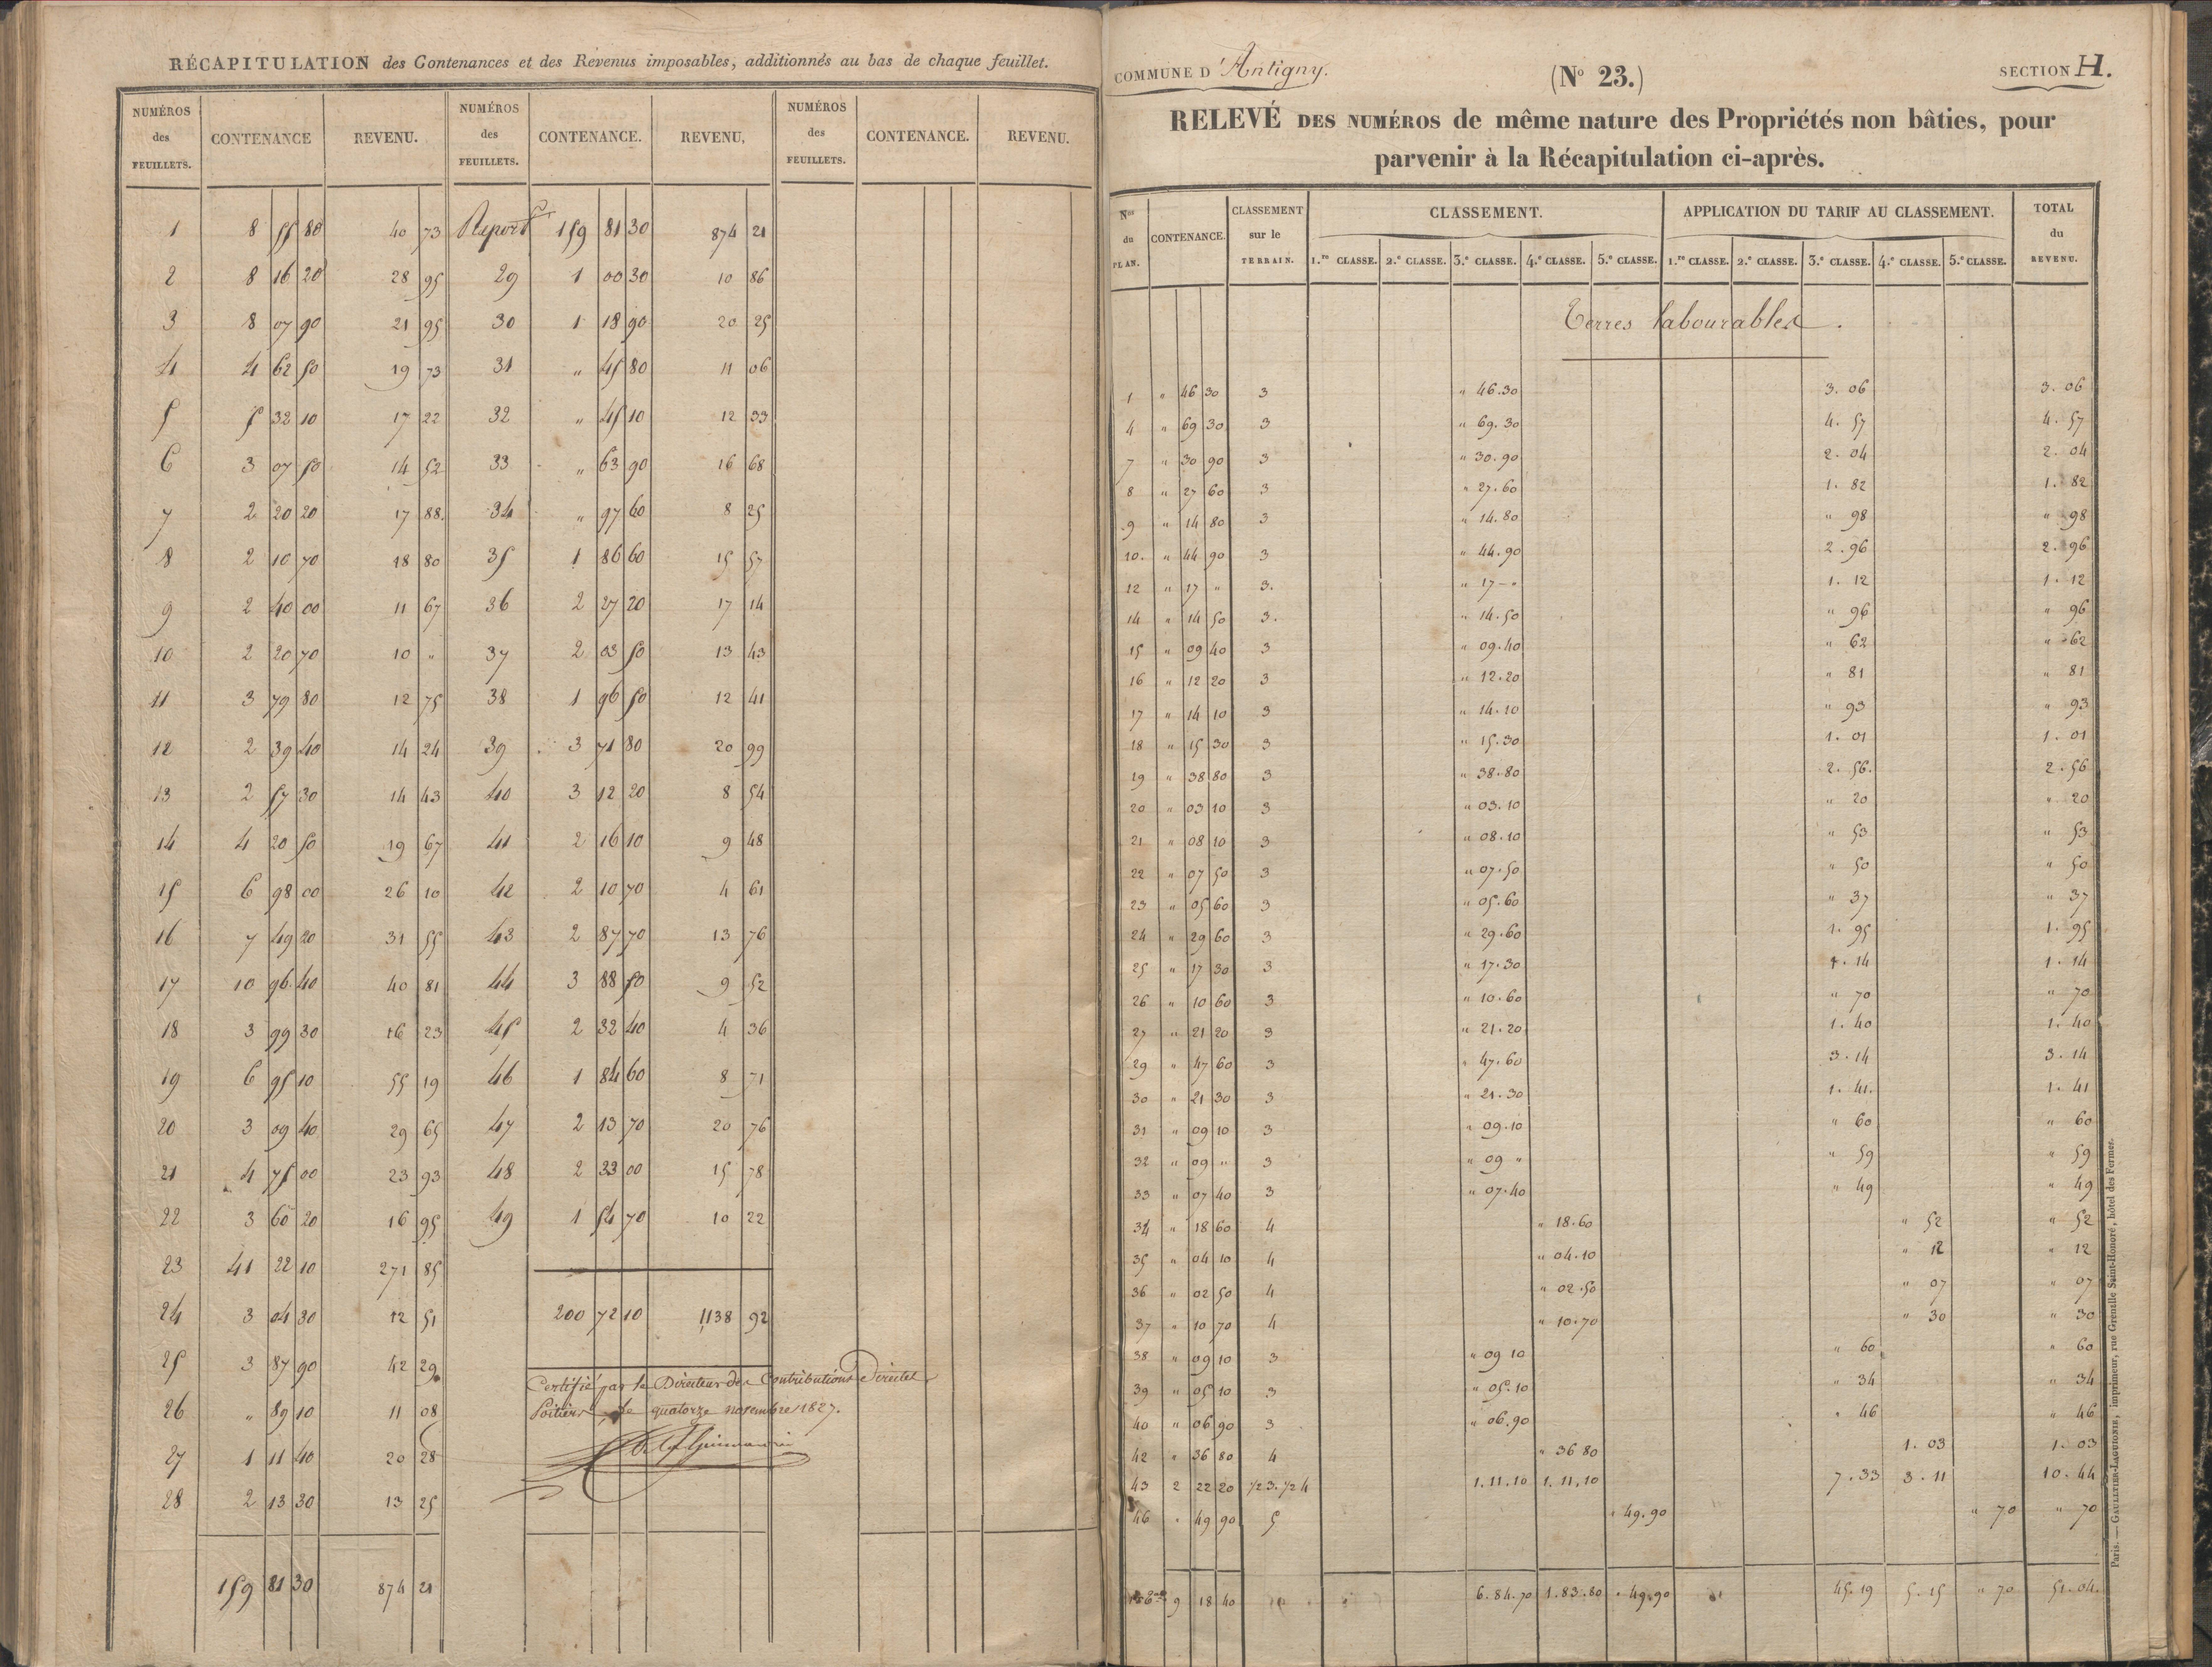 RÉCAPITULATION des Contenances et des Revenus imposables, additionnés au bas de chaque feuillet.
NUMÉROS des FEUILLETS. CONTENANCE REVENU. NUMÉROS des FEUILLETS. CONTENANCE. REVENU, NUMÉROS des FEUILLETS. CONTENANCE. REVENU.
1 8 55 80 40 73 Report 159 81 30 874 21
2 8 16 20 28 95 29 1 00 30 10 86
3 8 07 90 21 95 30 1 18 90 20 25
4 4 62 50 19 73 31 " 45 80 11 06
5 5 32 10 17 22 32 " 45 10 12 33
6 3 07 50 14 52 33 " 63 90 16 68
7 2 20 20 17 88. 34 " 97 60 8 25
8 2 10 70 18 80 35 1 86 60 15 57
9 2 40 00 11 67 36 2 27 20 17 14
10 2 20 70 10 " 37 2 03 50 13 43
11 3 79 80 12 75 38 1 96 50 12 41
12 2 39 40 14 24 39 3 71 80 20 99
13 2 57 30 14 43 40 3 12 20 8 54
14 4 20 50 19 67 41 2 16 10 9 48
15 6 98 00 26 10 42 2 10 70 4 61
16 7 49 20 31 55 43 2 87 70 13 76
17 10 96 40 40 81 44 3 88 50 9 52
18 3 99 30 16 23 45 2 32 40 4 36
19 6 95 10 55 19 46 1 84 60 8 71
20 3 09 40 29 65 47 2 13 70 20 76
21 4 75 00 23 93 48 2 33 00 15 78
22 3 60 20 16 95 49 1 54 70 10 22
23 41 22 10 271 85
24 3 04 30 12 51 200 72 10 1138 92
25 3 87 90 42 29
26 " 89 10 11 08
27 1 11 40 20 28
28 2 13 30 13 25
159 81 30 874 21
Certifié par le Directeur des Contributions Directes
Poitiers, le quatorze novembre 1827.
COMMUNE D'Antigny. (No 23.) SECTION H.
RELEVÉ DES NUMÉROS de même nature des Propriétés non bâties, pour
parvenir à la Récapitulation ci-après.
Nos du PLAN. CONTENANCE. CLASSEMENT sur le TERRAIN. CLASSEMENT. APPLICATION DU TARIF AU CLASSEMENT. TOTAL du REVENU.
1.re CLASSE. 2.e CLASSE. 3.e CLASSE. 4.e CLASSE. 5.e CLASSE. 1.re CLASSE. 2.e CLASSE. 3.e CLASSE. 4.e CLASSE. 5.e CLASSE.
Terres labourables.
1 " 46 30 3 " 46.30 3. 06 3. 06
4 " 69 30 3 " 69.30 4. 57 4. 57
7 " 30 90 3 " 30.90 2. 04 2. 04
8 " 27 60 3 " 27.60 1. 82 1. 82
9 " 14 80 3 " 14.80 " 98 " 98
10. " 44 90 3 " 44.90 2. 96 2. 96
12 " 17 " 3. " 17 - " 1. 12 1. 12
14 " 14 50 3. " 14.50 " 96 " 96
15 " 09 40 3 " 09.40 " 62 " 62
16 " 12 20 3 " 12.20 " 81 " 81
17 " 14 10 3 " 14.10 " 93 " 93
18 " 15 30 3 " 15.30 1. 01 1. 01
19 " 38 80 3 " 38.80 2. 56. 2. 56
20 " 03 10 3 " 03.10 " 20 " 20
21 " 08 10 3 " 08.10 " 53 " 53
22 " 07 50 3 " 07.50 " 50 " 50
23 " 05 60 3 " 05.60 " 37 " 37
24 " 29 60 3 " 29.60 1. 95 1. 95
25 " 17 30 3 " 17.30 1. 14 1. 14
26 " 10 60 3 " 10.60 " 70 " 70
27 " 21 20 3 " 21.20 1. 40 1. 40
29 " 47 60 3 " 47.60 3. 14 3. 14
30 " 21 30 3 " 21.30 1. 41. 1. 41
31 " 09 10 3 " 09.10 " 60 " 60
32 " 09 " 3 " 09 " " 59 " 59
33 " 07 40 3 " 07.40 " 49 " 49
34 " 18 60 4 " 18.60 " 52 " 52
35 " 04 10 4 " 04.10 " 12 " 12
36 " 02 50 4 " 02.50 " 07 " 07
37 " 10 70 4 " 10.70 " 30 " 30
38 " 09 10 3 " 09 10 " 60 " 60
39 " 05 10 3 " 05.10 " 34 " 34
40 " 06 90 3 " 06.90 " 46 " 46
42 " 36 80 4 " 36 80 1. 03 1. 03
43 2 22 20 1/2 3. 1/2 4 1.11.10 1.11.10 7.33 3.11 10.44
46 " 49 90 5 " 49.90 " 70 " 70
9 18 40 6.84.70 1.83.80 " 49.90 45.19 5.15 " 70 51.04.
Paris. — GAULTIER-LAGUIONIE, imprimeur, rue Grenelle Saint-Honoré, hôtel des Fermes.